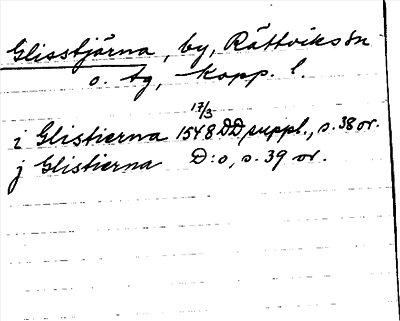 Glisstjärna, by, Rättviks sn
o. tg, Kopp. l.
17/3
i Glistierna 1548 DD suppl., s. 38 vr.
j Glistierna D:o, s. 39 vr.